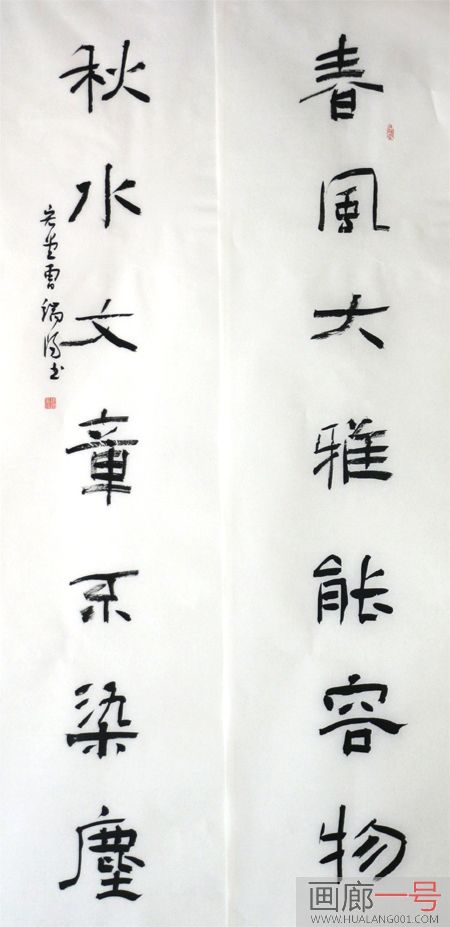 春風大雅能容物
秋水文章不染塵
曹瑞陽书
画廊一号
WWW.HUALANG001.COM